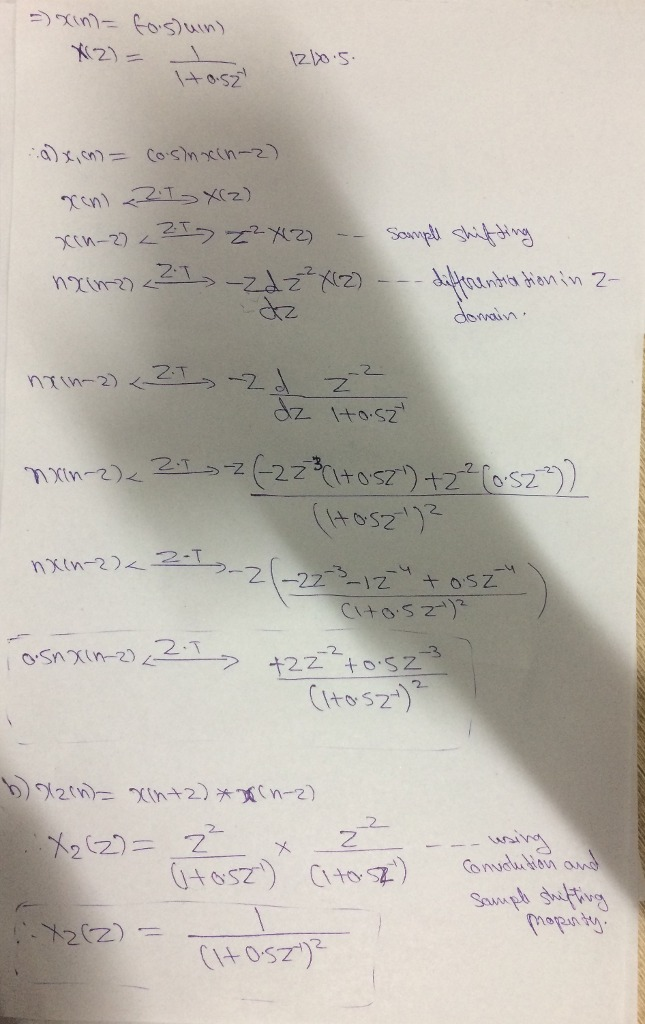 ⇒ x(n) = (-0.5)u(n)
X(z) = 1/(1+0.5z⁻¹) |z|>0.5.
∴ a) x₁(n) = (0.5)n x(n-2)
x(n) <-Z.T-> X(z)
x(n-2) <-Z.T-> z⁻² X(z) -- Sample shifting
nx(n-2) <-Z.T-> -z d/dz z⁻² X(z) --- differentiation in z-
domain.
nx(n-2) <-Z.T-> -z d/dz z⁻²/(1+0.5z⁻¹)
nx(n-2) <-Z.T-> -z (-2z⁻³(1+0.5z⁻¹) + z⁻²(0.5z⁻²))/(1+0.5z⁻¹)²
nx(n-2) <-Z.T-> -z (-2z⁻³ - 1z⁻⁴ + 0.5z⁻⁴/(1+0.5z⁻¹)²)
0.5nx(n-2) <-Z.T-> +2z⁻² + 0.5z⁻³/(1+0.5z⁻¹)²
b) x2(n) = x(n+2) * x(n-2)
∴ X2(z) = z²/(1+0.5z⁻¹) × z⁻²/(1+0.5z⁻¹) --- using
convolution and
Sample shifting
property.
∴ X2(z) = 1/(1+0.5z⁻¹)²